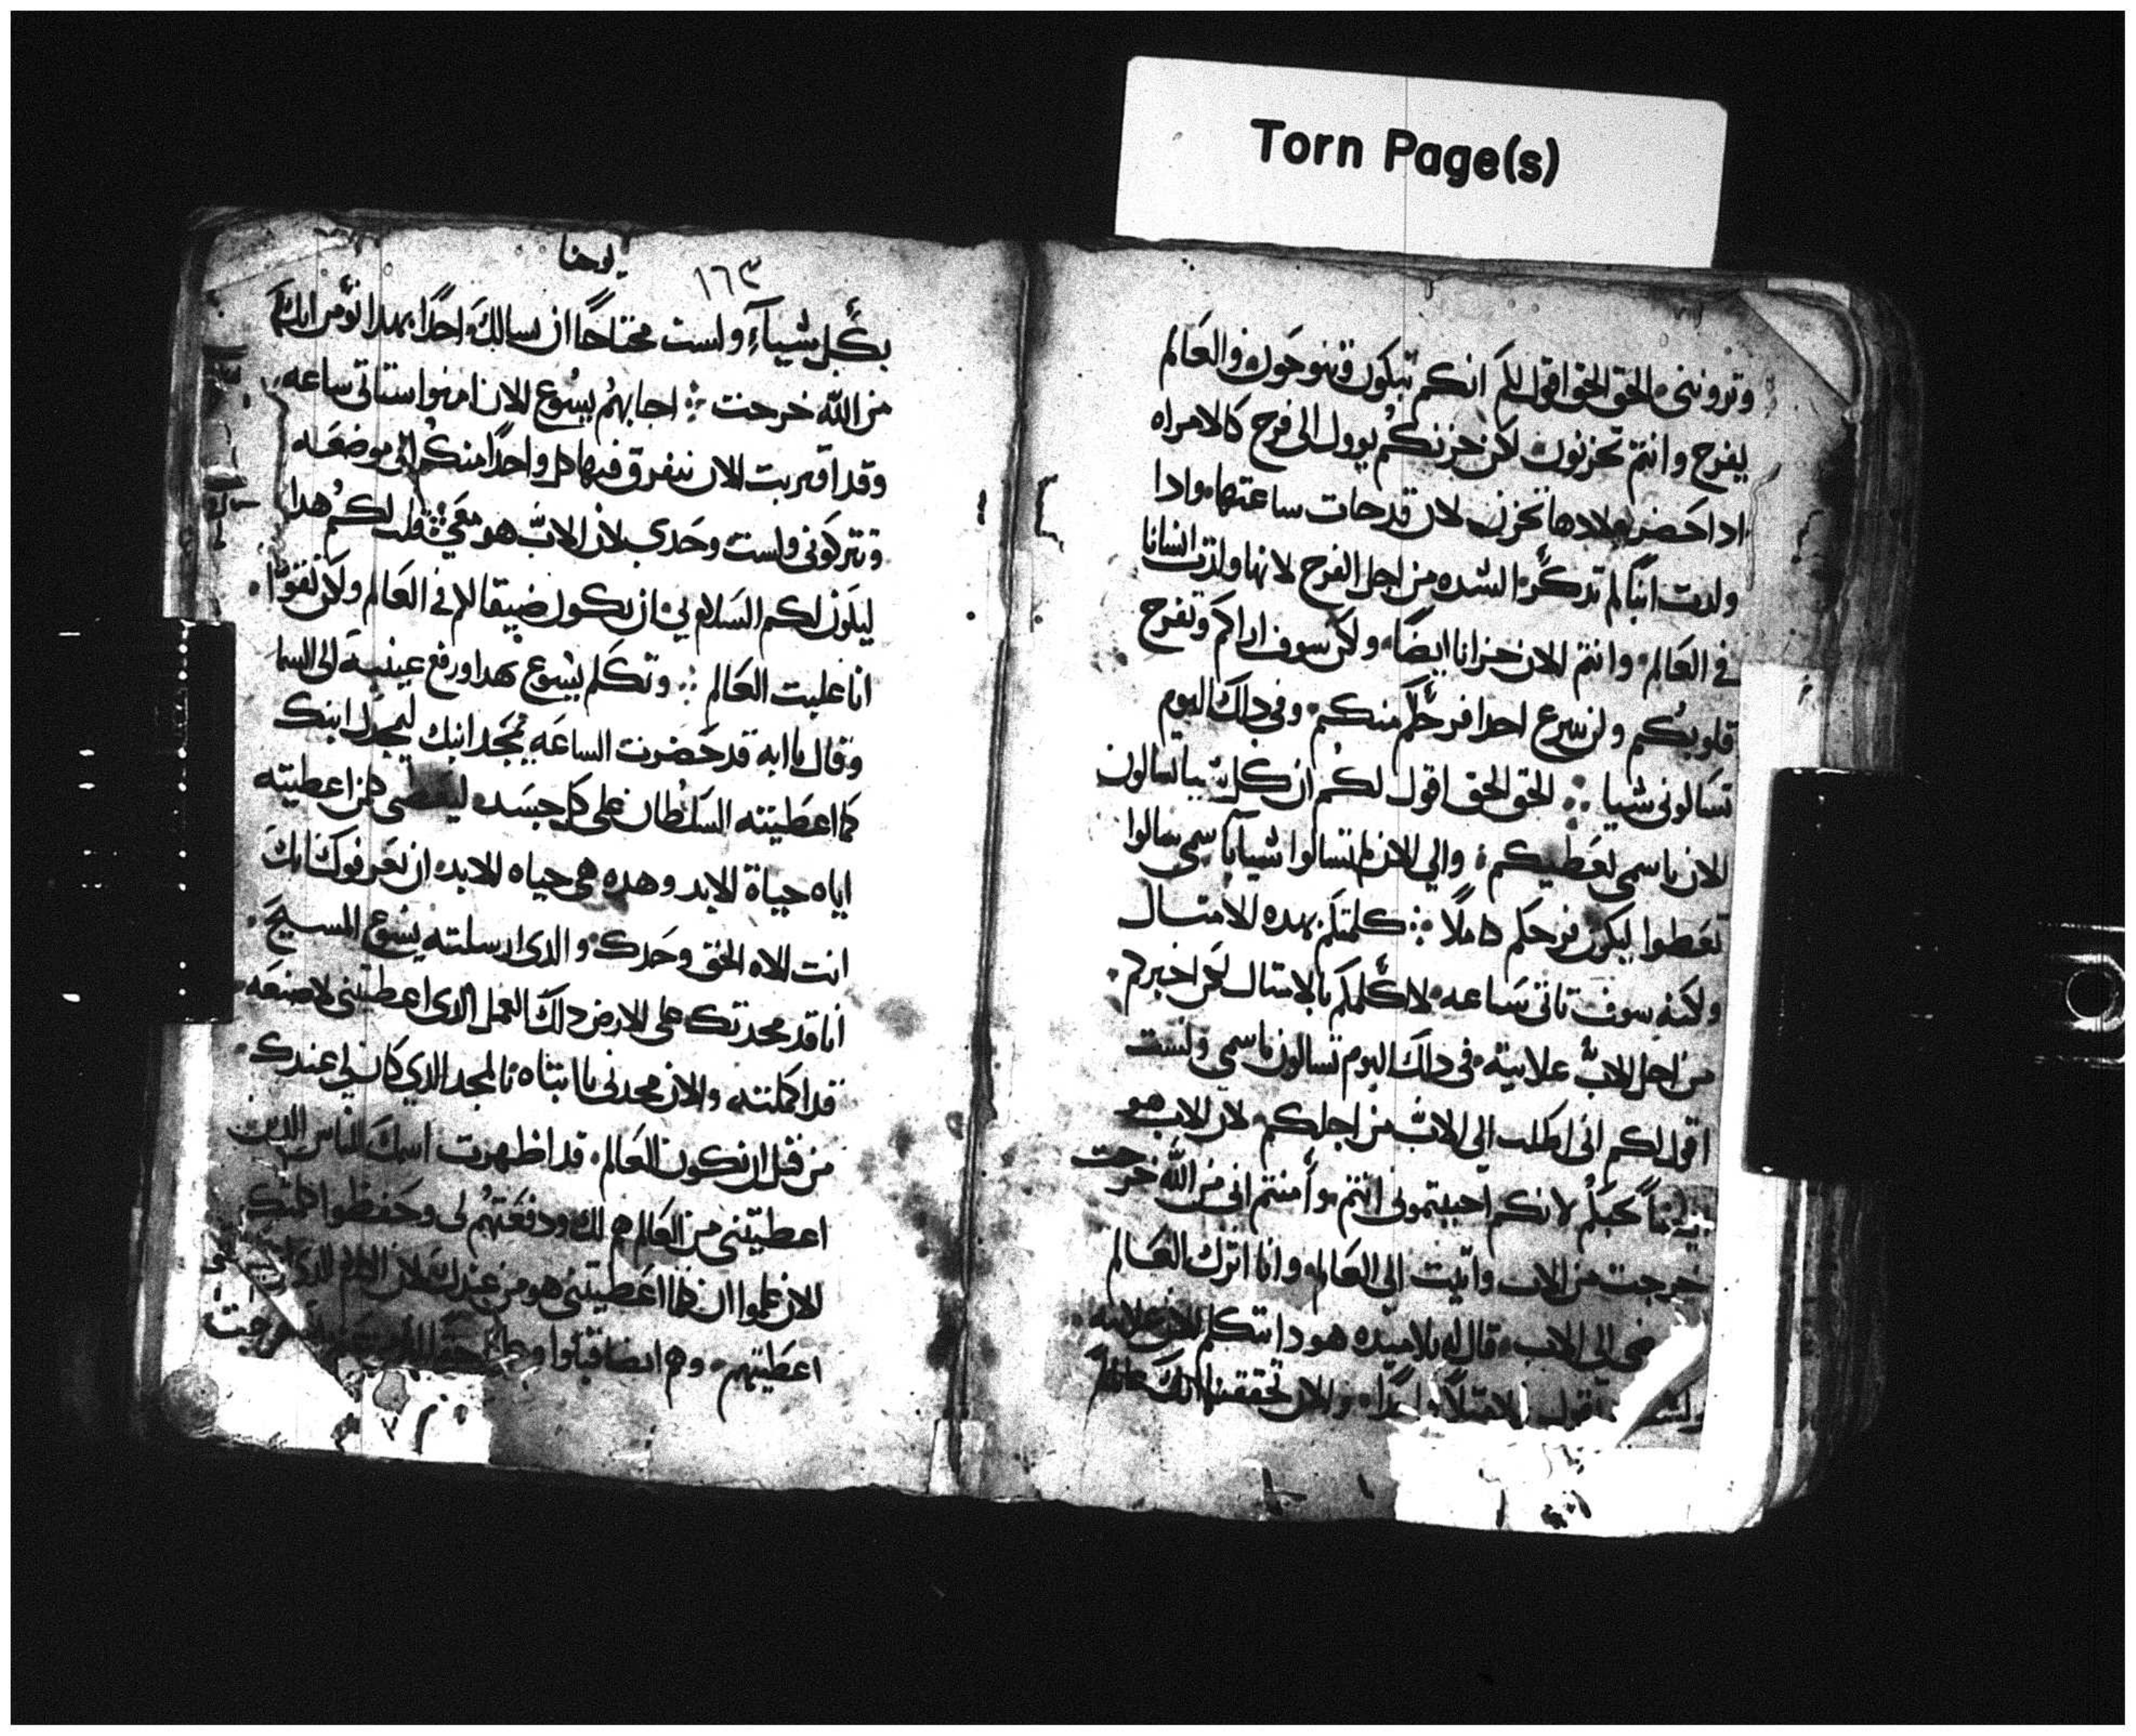 Torn Page(s)
وتروننى الحق الحق اقول لكم انكم تبكون وتنوحون والعالم
يفرح وانتم تحزنون لكن حزنكم يوول الى فرح كالامراه
ادا حضر ميلادها تحزن لان قد جات ساعتها وادا
ولدت ابنا لم تدكر الشده من اجل الفرح لانها ولدت انسانا
فى العالم وانتم الان حزانا ايضا ولكن سوف اراكم وتفرح
قلوبكم ولن ينزع احدا فرحكم منكم وفى دلك اليوم
تسالونى شيا الحق الحق اقول لكم ان كل شيا تسالون
الان باسمى تعطيكم والي الان لم تسالوا شيا باسمى سالوا
تعطوا ليكون فرحكم كاملا كلمتكم بهده الامتال
ولكنه سوف تاتى ساعه لا اكلمكم بالامتال لكن اخبركم
من اجل الاب علانيه فى دلك اليوم تسالون باسمى ولست
اقول لكم انى اطلب الى الاب من اجلكم لان الاب هو
يحبكم لانكم احببتمونى انتم وامنتم انى من الله خرجت
خرجت من الاب واتيت الى العالم وانا اترك العالم
الى الاب قال له تلاميده هودا تتكلم الان علانيه
تقول والان تحققنا انك عالم
١٦٣ يوحنا
بكل شياء ولست محتاجا ان يسالك احدا بهدا نومن انك
من الله خرجت اجابهم يسوع الان امنوا ستاتى ساعه
وقد اقتربت الان يتفرق فيها كل واحدا منكم الى موضعه
وتتركونى ولست وحدى لان الاب هو معي قلت لكم هدا
ليكون لكم السلام بي ان يكون ضيقا لكم فى العالم ولكن تقووا
انا غلبت العالم وتكلم يسوع بهدا ورفع عينيه الى السما
وقال يا ابه قد حضرت الساعه مجد ابنك ليمجدك ابنك
كما اعطيته السلطان على كل جسد كلمن اعطيته
اياه حياة الابد وهده هى حياه الابد ان يعرفوك انك
انت الاه الحق وحدك والدى ارسلته يسوع المسيح
انا قد مجدتك على الارض دلك العمل الدى اعطيتنى لاصنعه
قد اكملته والان مجدنى يا ابتاه بالمجد الدي كان لى عندك
من قبل ان يكون العالم قد اظهرت اسمك للناس الدين
اعطيتنى من العالم هم لك ودفعتهم لى وحفظوا كلمتك
الان علموا ان كلما اعطيتنى هو من عندك لان الكلام
اعطيتهم وهم ايضا قبلوا وعلموا حقا خرجت